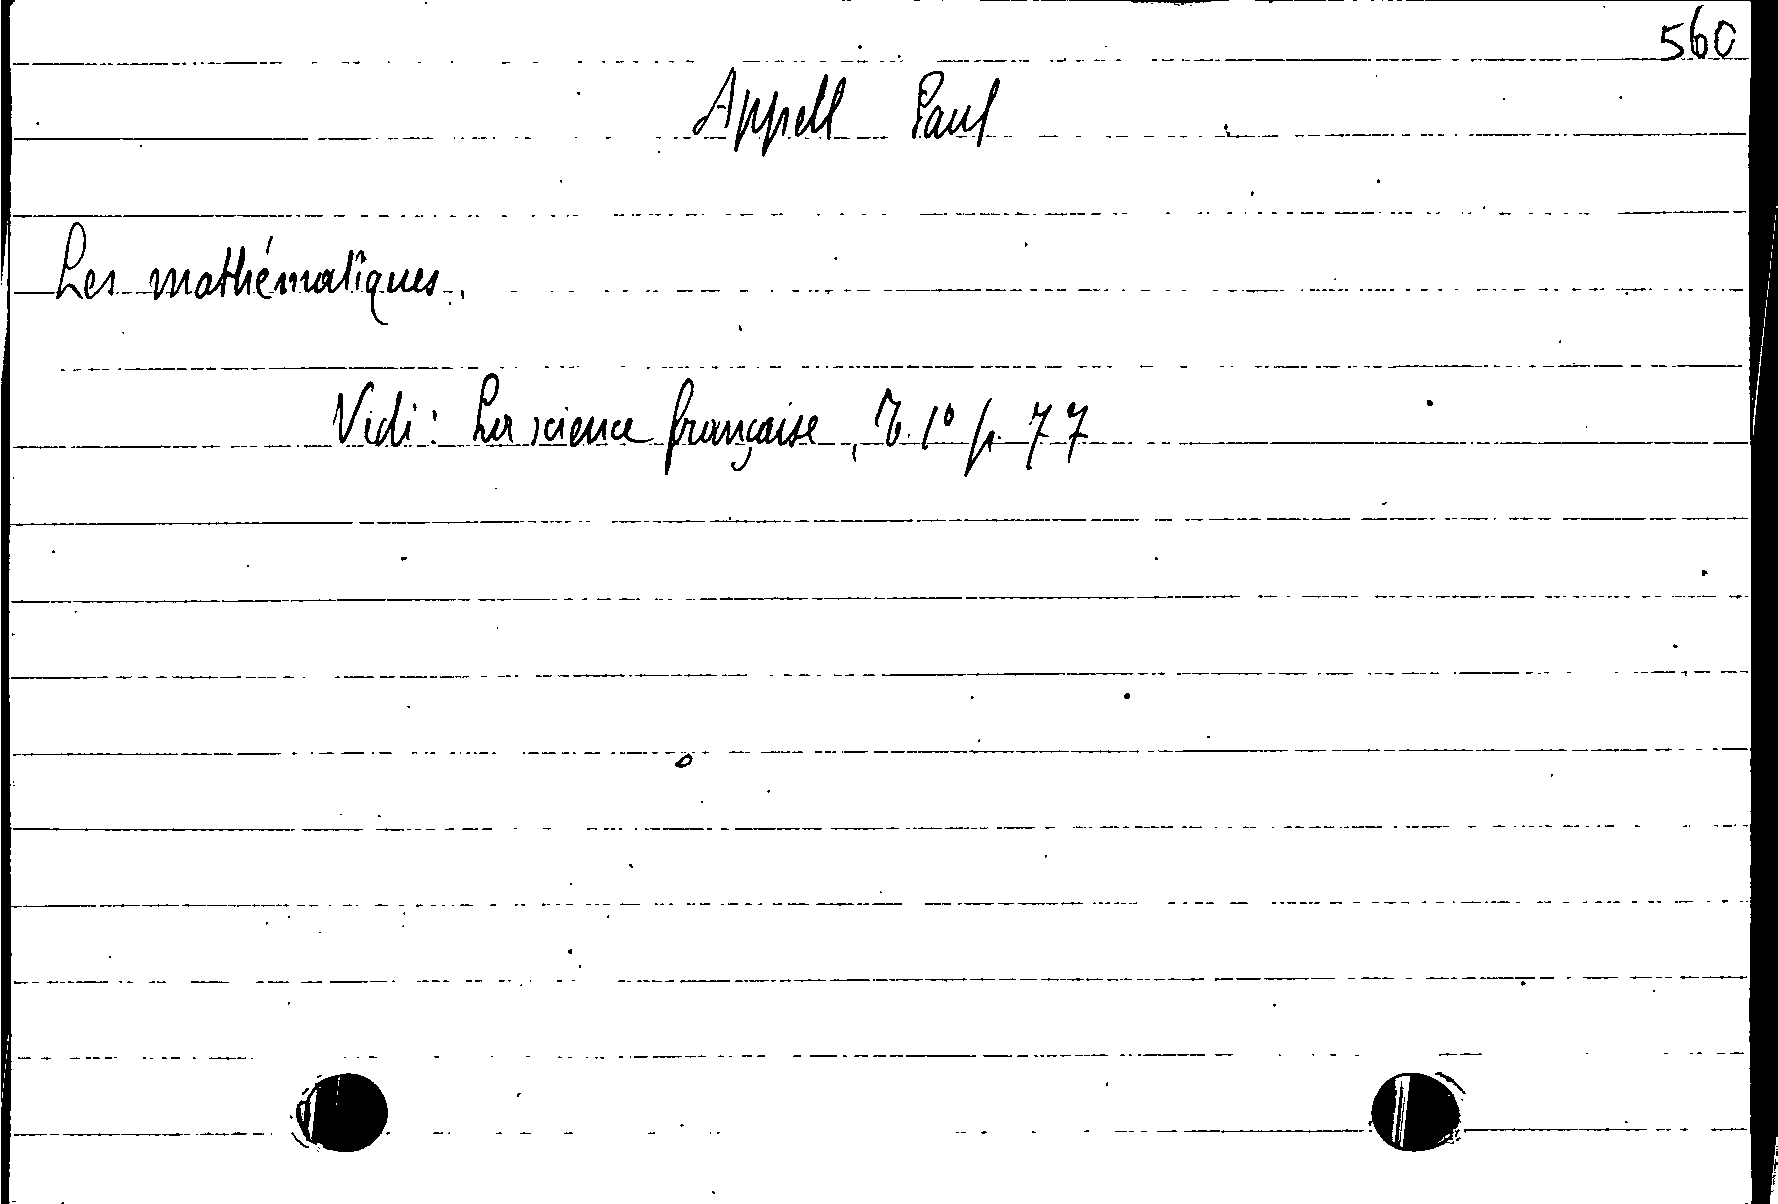 560
Appell Paul
Les mathématiques.
Vedi: La science française, T. 1° p. 77